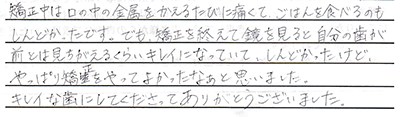 矯正中は口の中の金属をかえるたびに痛くて、ごはんを食べるのも
しんどかったです。でも、矯正を終えて鏡を見ると自分の歯が
前とは見ちがえるくらいキレイになっていて、しんどかったけど、
やっぱり矯正をやってよかったなぁと思いました。
キレイな歯にしてくださってありがとうございました。